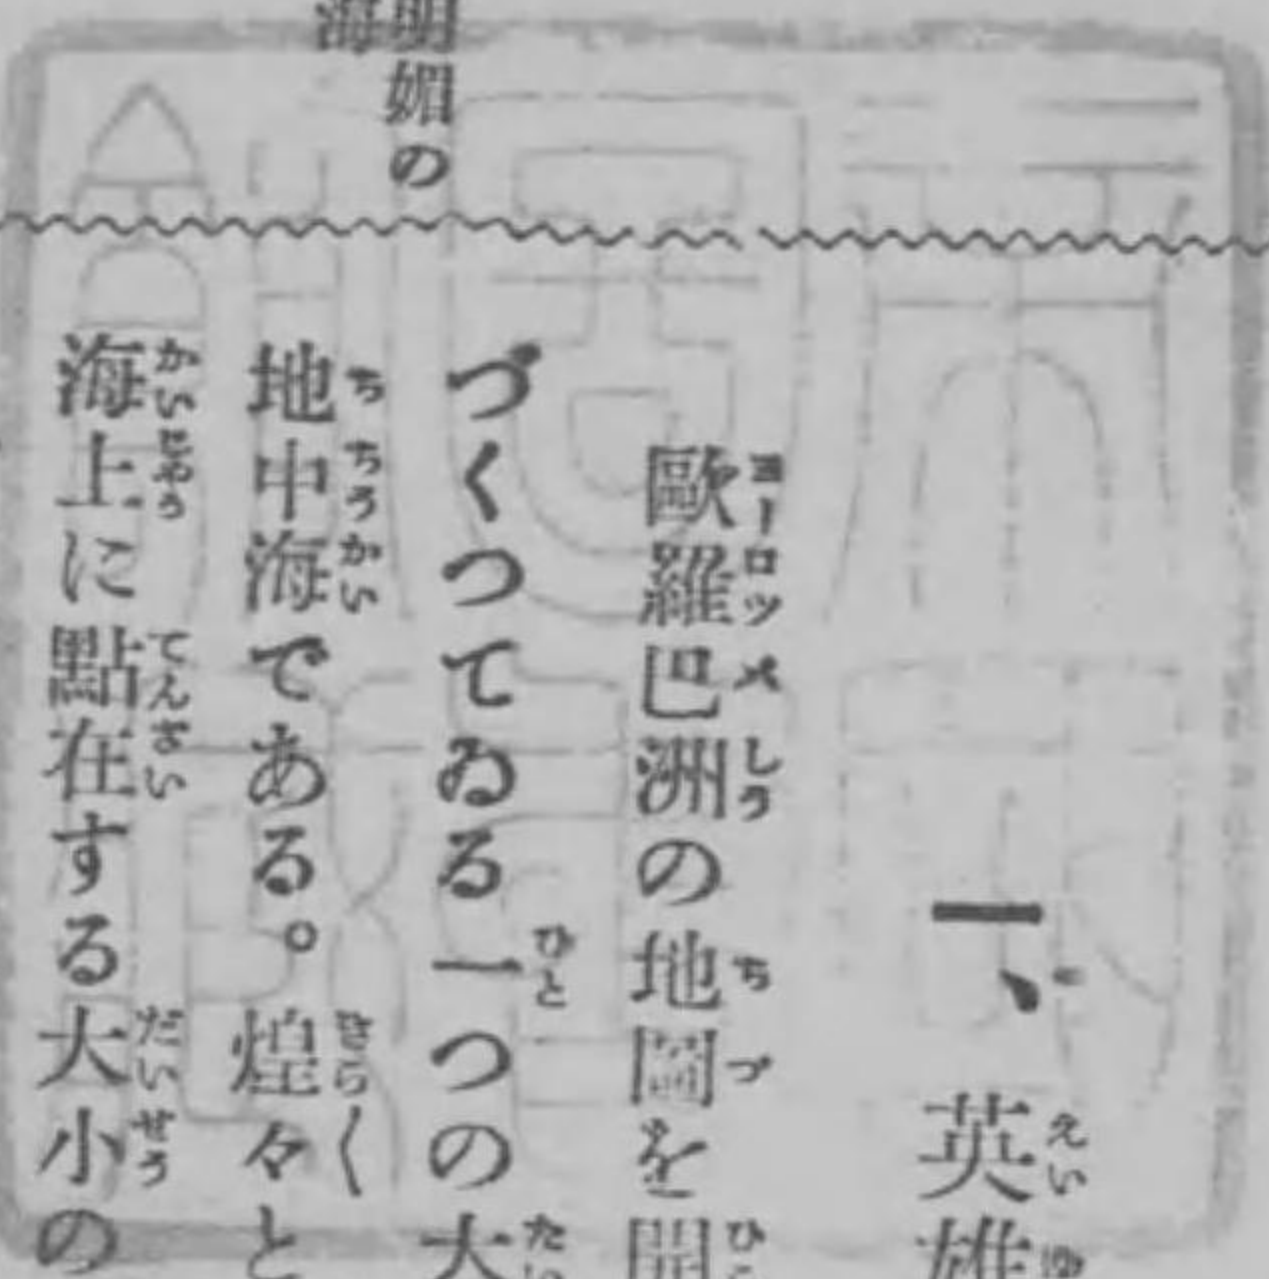 一、英雄
歐羅巴洲の地圖を開
づくつてゐる一つの大
地中海である。煌々と
海上に點在する大小の
明媚の
海